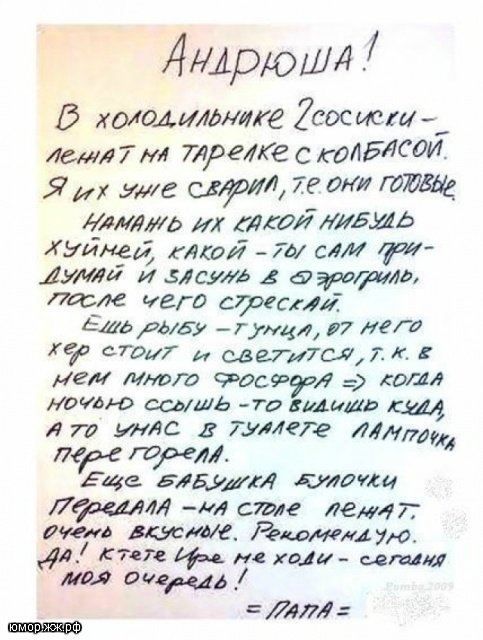 Андрюша!
В холодильнике 2 сосиски –
лежат на тарелке с колбасой.
Я их уже сварил, т.е. они готовые.
Намажь их какой нибудь
хуйней, какой – ты сам при-
думай и засунь в аэрогриль,
после чего стрескай.
Ешь рыбу – тунца, от него
хер стоит и светится, т.к. в
нем много фосфора => когда
ночью ссышь – то видишь куда,
а то унас в туалете лампочка
перегорела.
Еще бабушка булочки
передала – на столе лежат.
очень вкусные. Рекомендую.
Да! К тете Ире не ходи – сегодня
моя очередь!
= ПАПА =
Pumba 2009
юморжж.рф